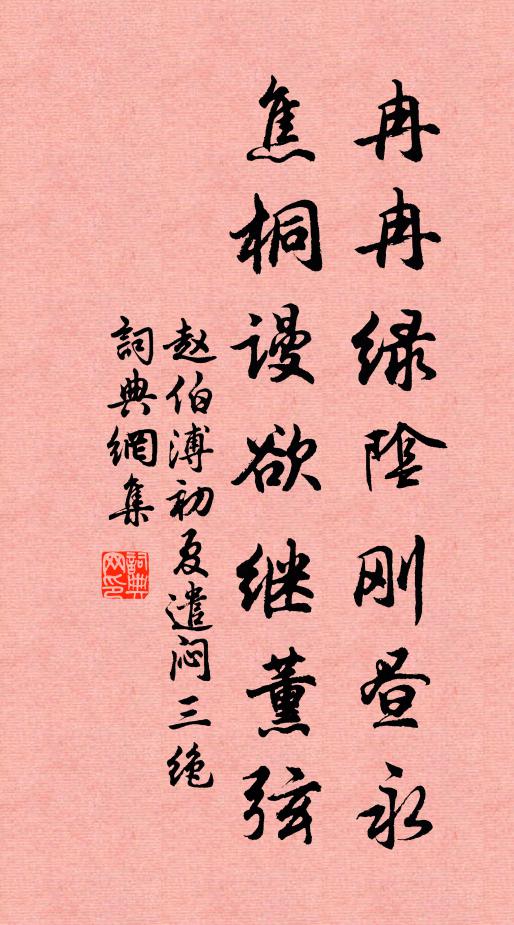 冉冉绿阴刚昼永
焦桐谩欲继薰弦
赵伯溥初夏遣闷三绝
词典網集
詞典网印